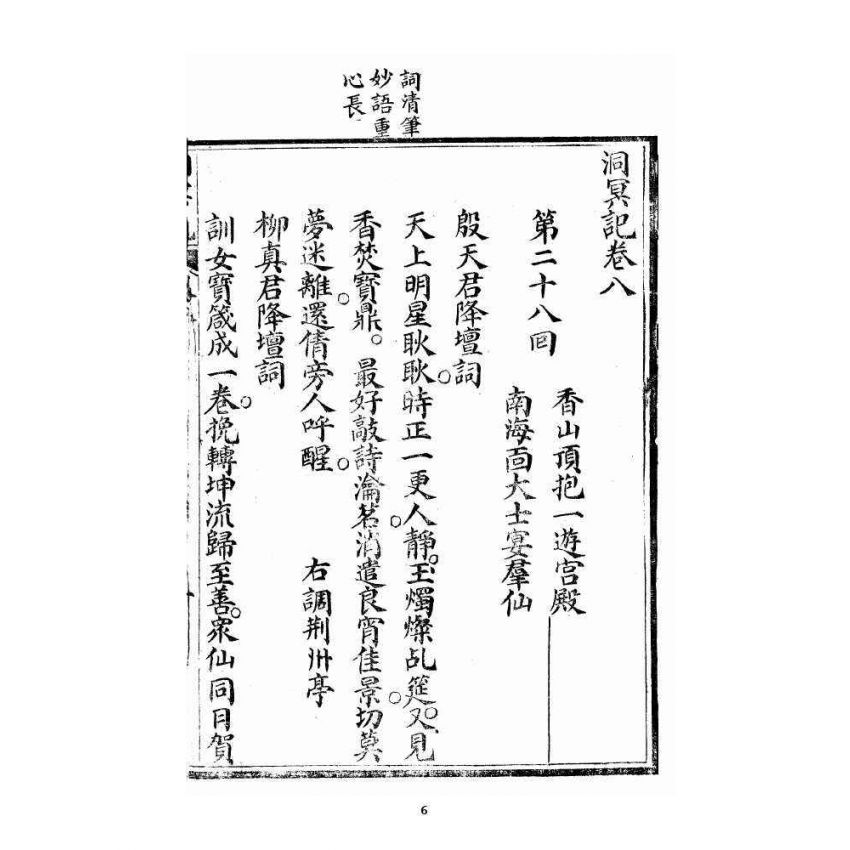 詞清筆
妙語重
心長
洞冥記卷八
第二十八回
香山頂抱一遊宮殿
南海面大士宴羣仙
殷天君降壇詞
天上明星耿耿。時正一更人靜。玉燭燦乩筵。又見
香焚寶鼎。最好敲詩瀹茗。消遣良宵佳景。切莫
夢迷離。還倩旁人呼醒。
右調荆州亭
柳真君降壇詞
訓女寶箴成一卷。挽轉坤流歸至善。衆仙同日賀
6